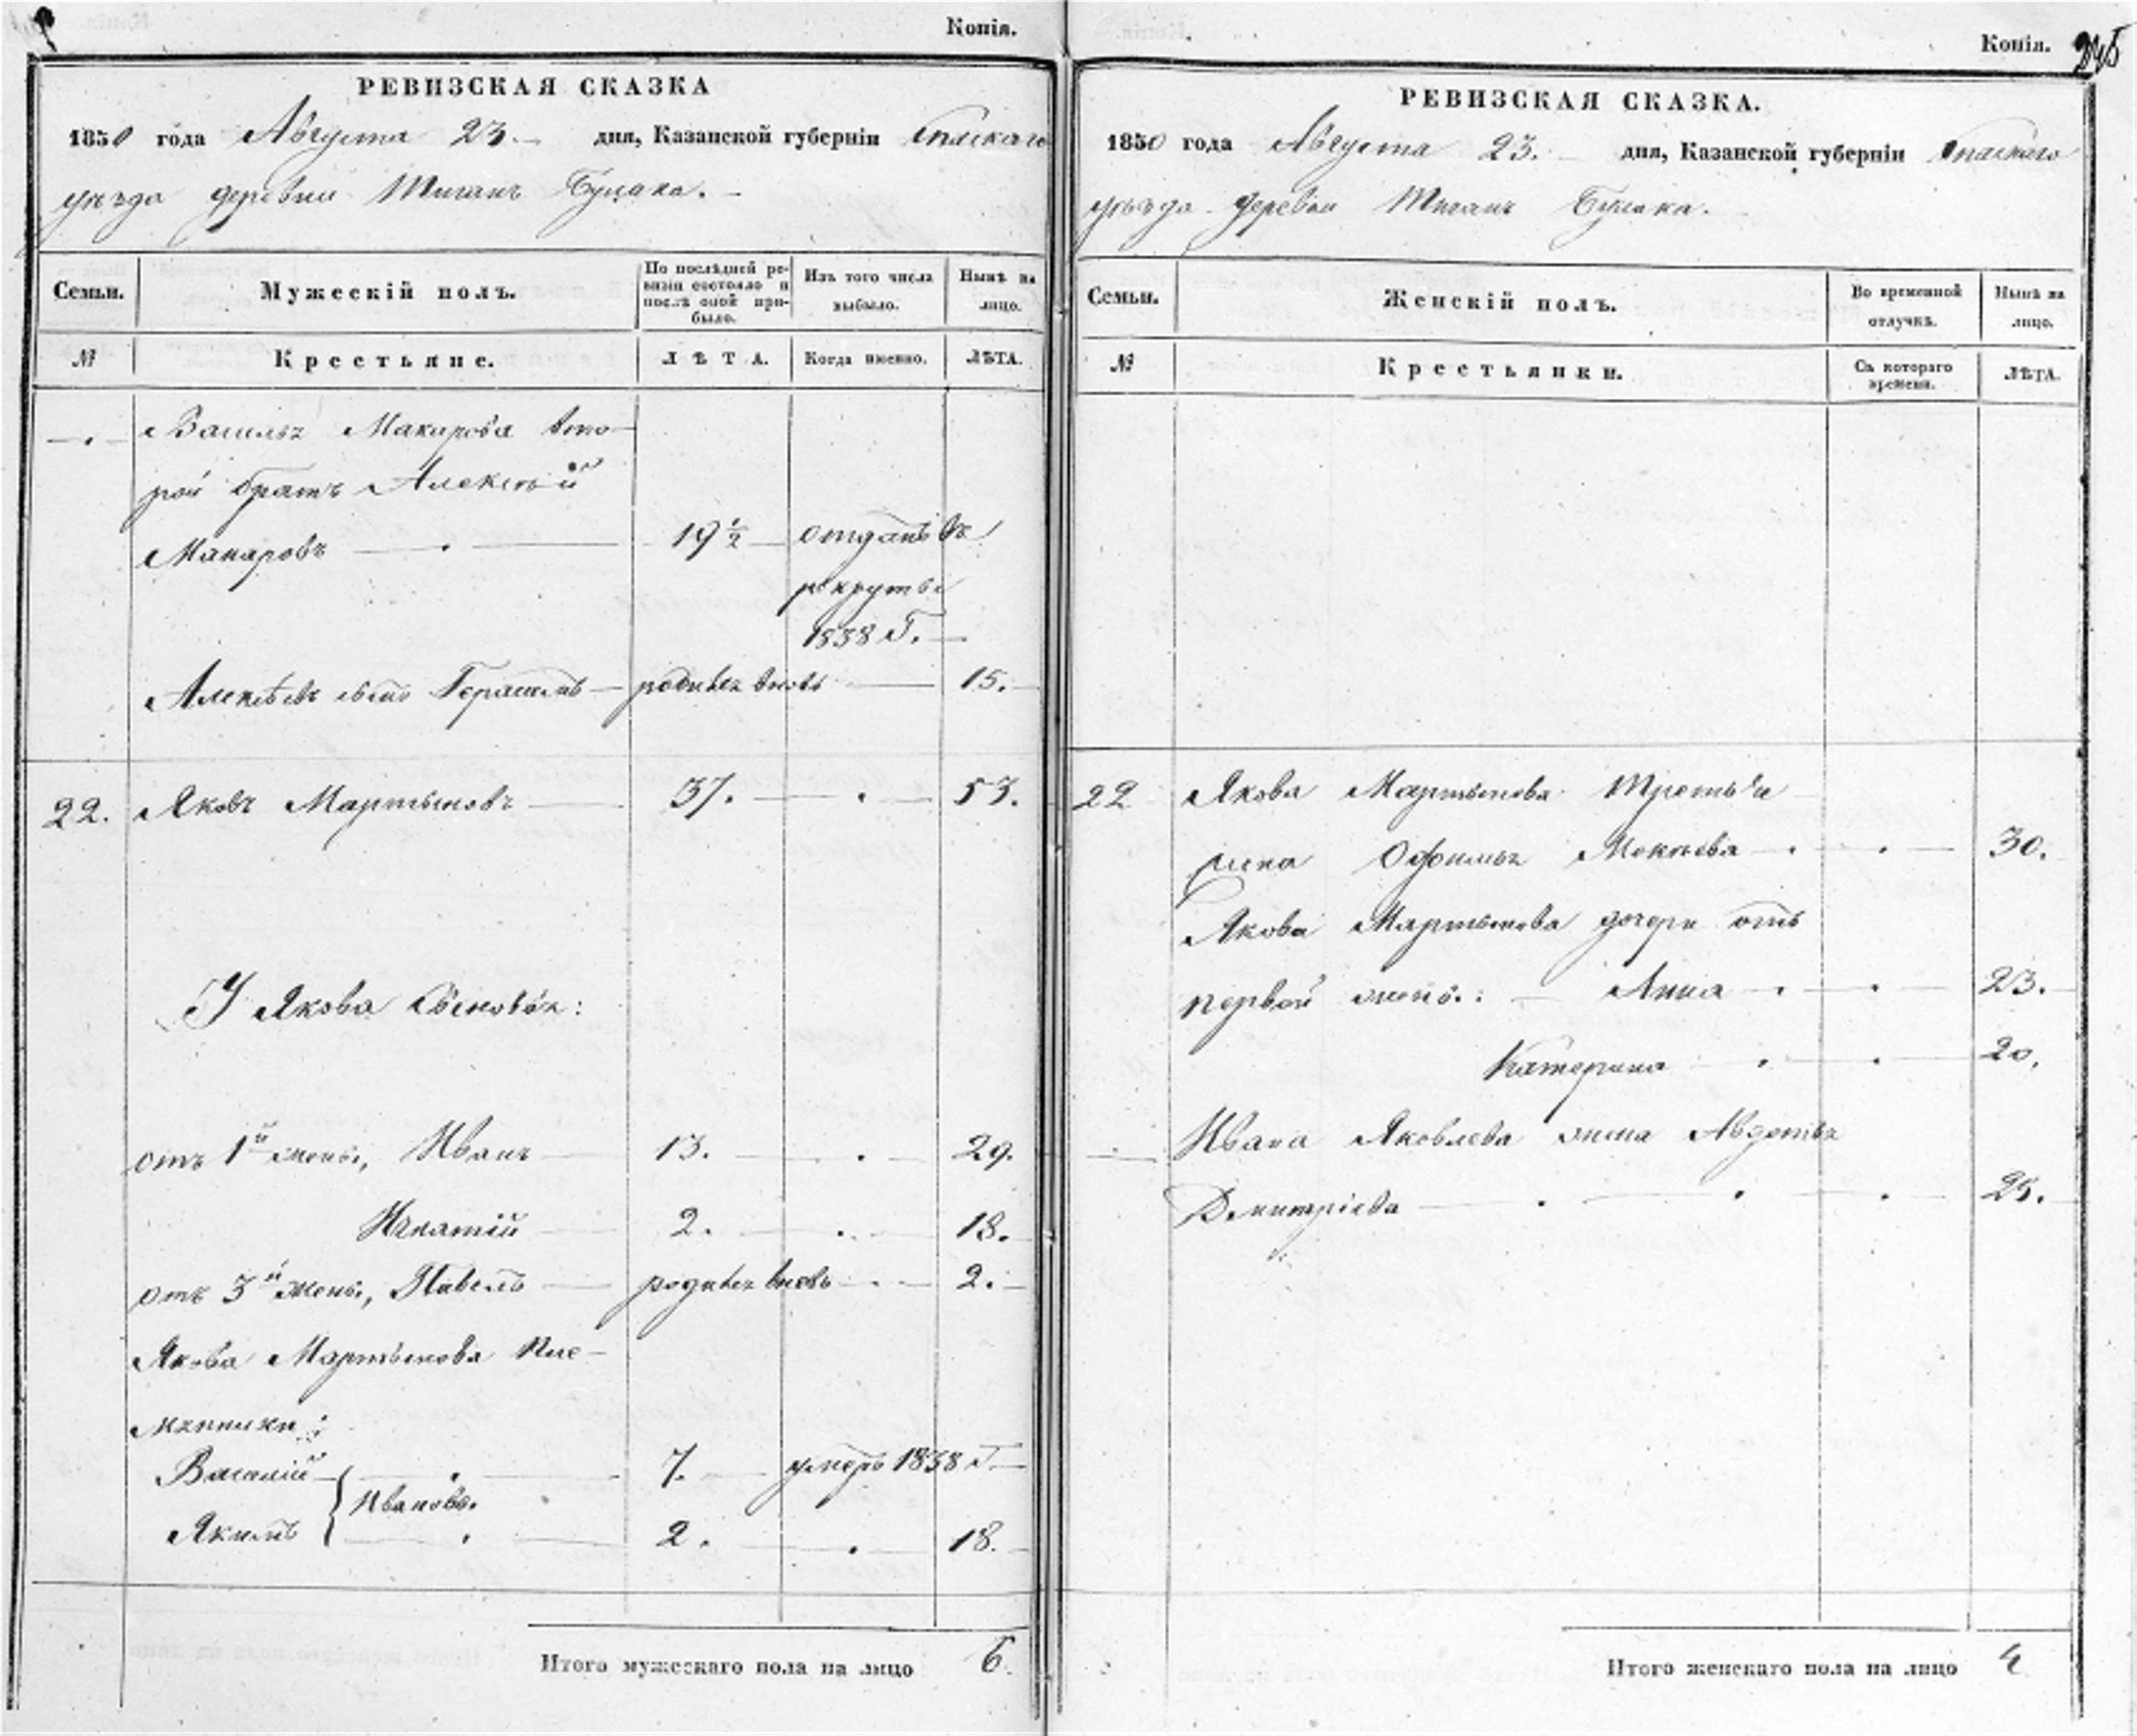 Копія.
РЕВИЗСКАЯ СКАЗКА
1850 года Августа 23. дня, Казанской губерніи Спаскаго
уѣзда деревни Тиган Булака.
Семьи.
Мужескій полъ.
По послѣдней ревизіи состояло и послѣ оной прибыло.
Изъ того числа выбыло.
Нынѣ на лицо.
№
Крестьяне.
ЛѢТА.
Когда именно.
ЛѢТА.
Василья Макарова вто-
рой братъ Алексѣй
Макаровъ 19½ отданъ въ
рекруты
1838 г.
Алексѣевъ сынъ Герасимъ родился вновь 15.
22. Яковъ Мартыновъ 37. 53.
У Якова сыновья:
отъ 1й жены, Иванъ 13. 29.
Игнатій 2. 18.
отъ 3й жены, Павелъ родился вновь 2.
Якова Мартынова пле-
мянники:
Василій 7. умеръ 1838 г.
Ивановы.
Якимъ 2. 18.
Итого мужескаго пола на лицо 6.
Копія. 245
РЕВИЗСКАЯ СКАЗКА.
1850 года Августа 23. дня, Казанской губерніи Спаскаго
уѣзда деревни Тиган Булака.
Семьи.
Женскій полъ.
Во временной отлучкѣ.
Нынѣ на лицо.
№
Крестьянки.
Съ котораго времени.
ЛѢТА.
22 Якова Мартынова третья
жена Офимья Мокѣева 30.
Якова Мартынова дочери отъ
первой жены: Анна 23.
Катерина 20.
Ивана Яковлева жена Авдотья
Димитріева 25.
Итого женскаго пола на лицо 4